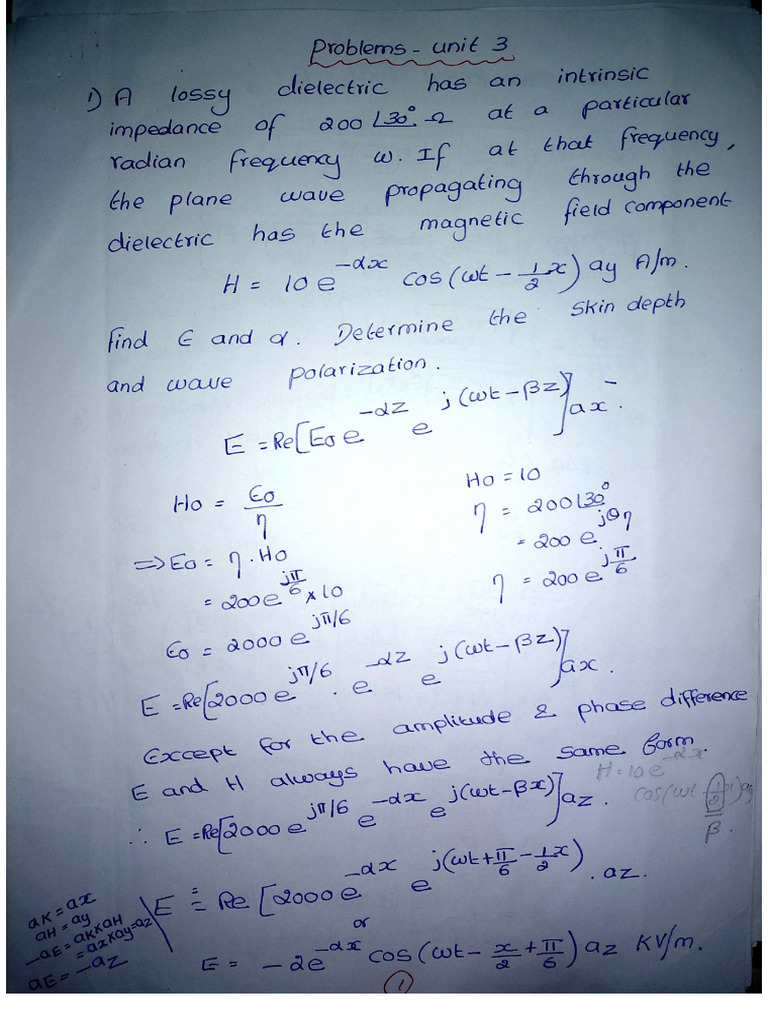 Problems - unit 3
1) A lossy dielectric has an intrinsic
impedance of 200∠30° Ω at a particular
radian frequency ω. If at that frequency,
the plane wave propagating through the
dielectric has the magnetic field component
H = 10 e^{-αx} cos(ωt - 1/2 x) ay A/m.
find E and α. Determine the skin depth
and wave polarization.
E = Re[E0 e^{-αz} e^{j(ωt-βz)}] ax.
H0 = E0/η
H0 = 10
η = 200∠30°
⇒ E0 = η · H0
= 200 e^{jθη}
= 200 e^{jπ/6} × 10
η = 200 e^{jπ/6}
E0 = 2000 e^{jπ/6}
E = Re[2000 e^{jπ/6} · e^{-αz} e^{j(ωt-βz)}] ax.
Except for the amplitude & phase difference
E and H always have the same form.
H = 10 e^{-αx}
cos(ωt - 1/2 x) ay
β.
∴ E = Re[2000 e^{jπ/6} e^{-αx} e^{j(ωt-βx)}] az.
E = Re[2000 e^{-αx} e^{j(ωt+π/6-1/2 x)} . az.
or
E = -2e^{-αx} cos(ωt - x/2 + π/6) az KV/m.
aK = ax
aH = ay
-aE = aK×aH
= ax×ay=az
aE = -az
1